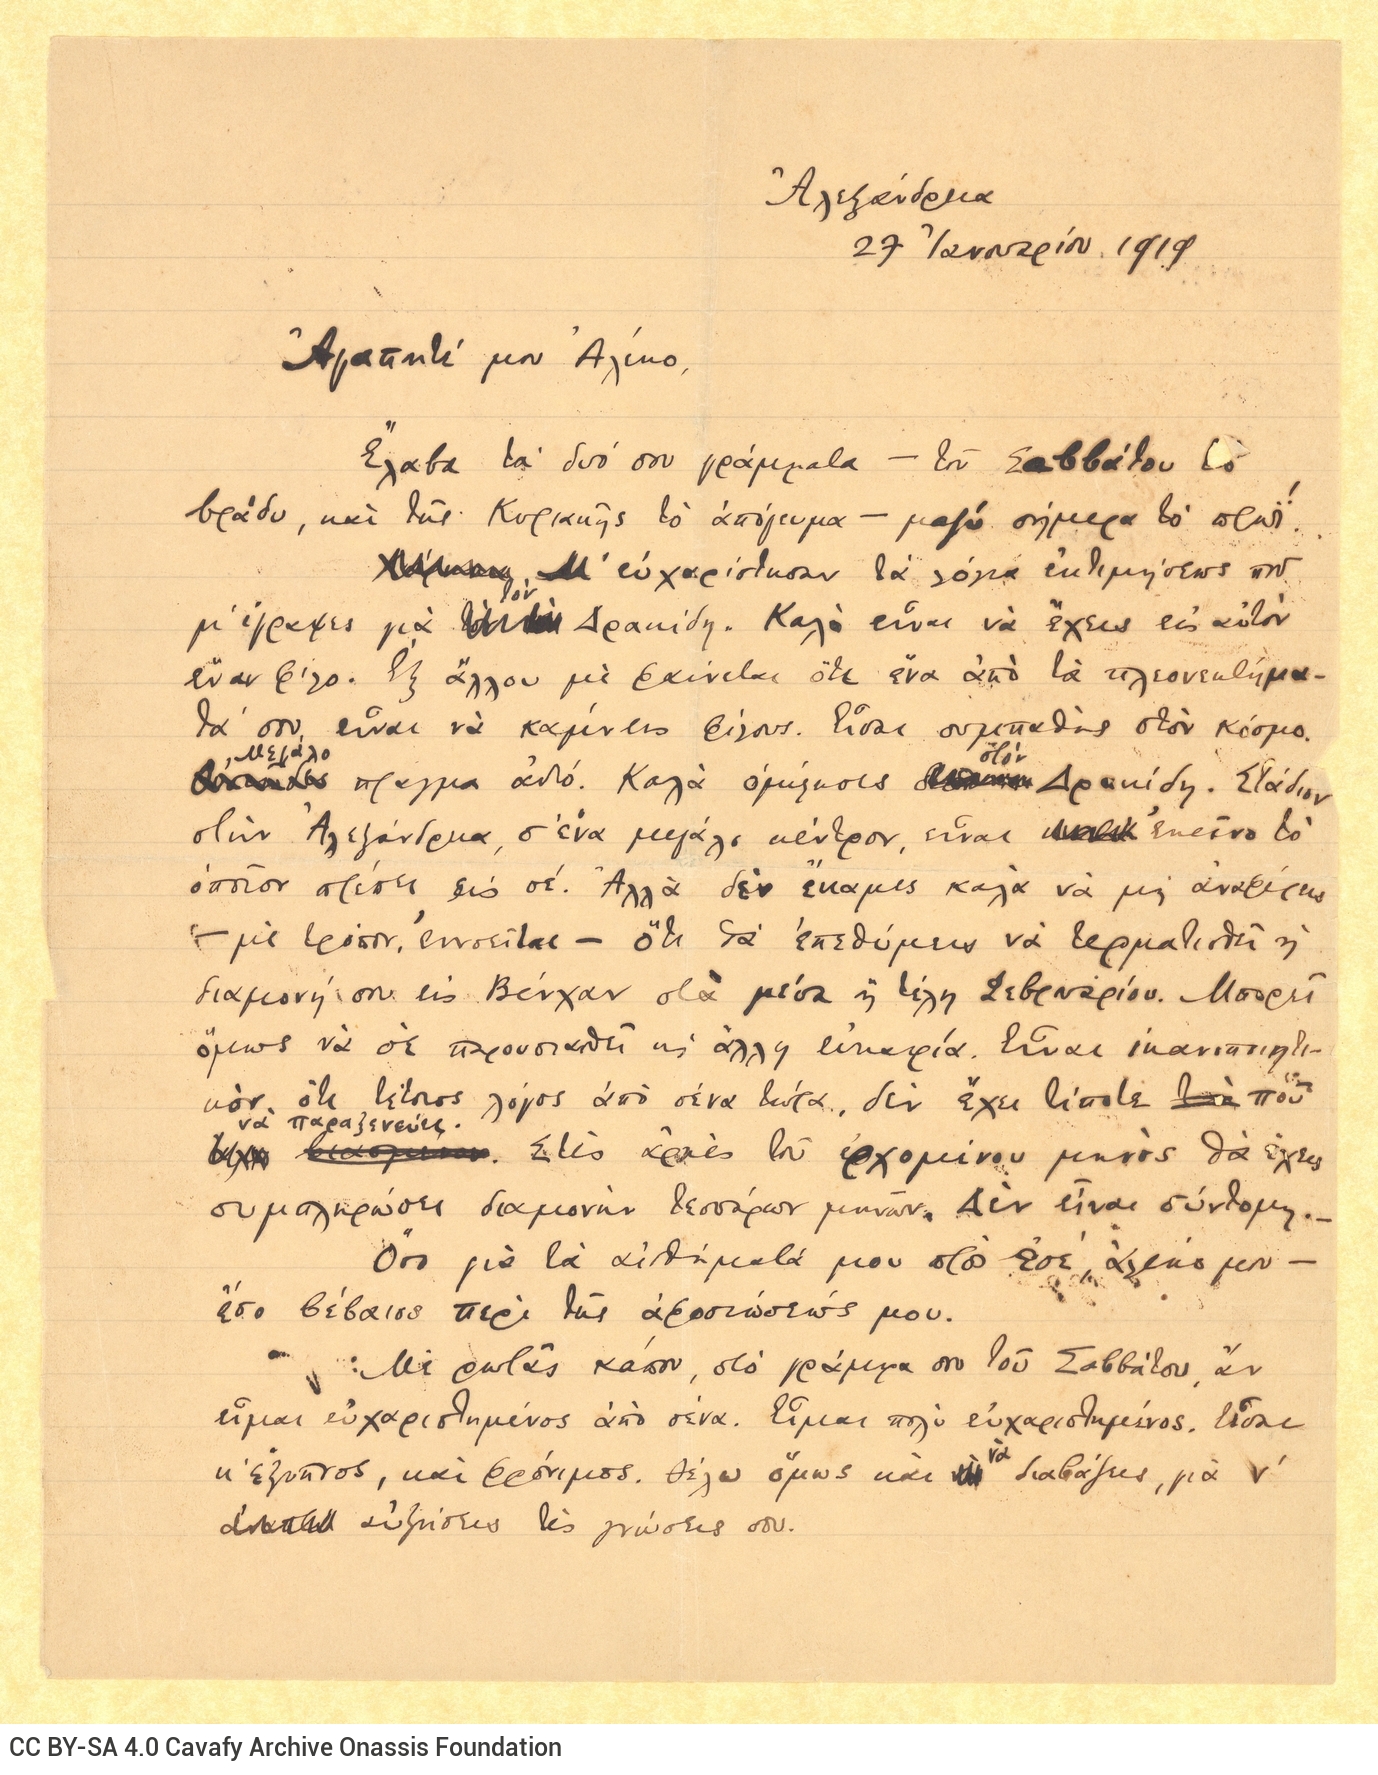 Ἀλεξάνδρεια
27 Ἰανουαρίου 1919
Ἀγαπητέ μου Ἀλέκο,
Ἔλαβα τὰ δυό σου γράμματα — τοῦ Σαββάτου τὸ
βράδυ, καὶ τῆς Κυριακῆς τὸ ἀπόγευμα — μαζύ σήμερα τὸ πρωΐ.
Μ' εὐχαρίστησαν τὰ λόγια ἐκτιμήσεως ποῦ
τὸν
μ' ἔγραψες γιὰ Δρακίδη. Καλὸ εἶναι νὰ ἔχεις εἰς αὐτὸν
ἕναν φίλο. Ἐξ ἄλλου μὲ φαίνεται ὅτι ἕνα ἀπὸ τὰ πλεονεκτήμα-
τά σου, εἶναι νὰ καμίνεις φίλους. Εἶσαι συμπαθὴς στὸν κόσμο.
Μεγάλο στὸν
πρᾶγμα αὐτό. Καλὰ ὁμίλησες Δρακίδη. Στάδιον
στὴν Ἀλεξάνδρεια, σ' ἕνα μεγάλο κέντρον, εἶναι ἐκεῖνο τὸ
ὁποῖον πρέπει εἰς σέ. Ἀλλὰ δὲν ἔκαμες καλὰ νὰ μὴ ἀναφέρεις
— μὲ τρόπον, ἐννοεῖται — ὅτι θὰ ἐπεθύμεις νὰ τερματισθεῖ ἡ
διαμονή σου εἰς Βένχαν στὰ μέσα ἢ τέλη Φεβρουαρίου. Μπορεῖ
ὅμως νὰ σὲ παρουσιασθεῖ κι ἄλλη εὐκαιρία. Εἶναι ἱκανοποιητι-
κὸν ὅτι τέτοιος λόγος ἀπὸ σένα τώρα, δὲν ἔχει τίποτε ποῦ
νὰ παραξενεύει.
Στὲς ἀρχὲς τοῦ ἐρχομένου μηνὸς θὰ ἔχεις
συμπληρώσει διαμονὴν τεσσάρων μηνῶν. Δὲν εἶναι σύντομη.—
Ὅσο γιὰ τὰ αἰσθήματά μου πρὸς ἐσέ, Ἀλέκο μου —
ἔσο βέβαιος περὶ τῆς ἀφοσιώσεώς μου.
Μὲ ρωτᾶς κάπου, στὸ γράμμα σου τοῦ Σαββάτου, ἂν
εἶμαι εὐχαριστημένος ἀπὸ σένα. Εἶμαι πολὺ εὐχαριστημένος. Εἶσαι
κ' ἔξυπνος, καὶ φρόνιμος. Θέλω ὅμως καὶ νὰ διαβάζεις, γιὰ ν'
αὐξήσεις τὲς γνώσεις σου.
CC BY-SA 4.0 Cavafy Archive Onassis Foundation